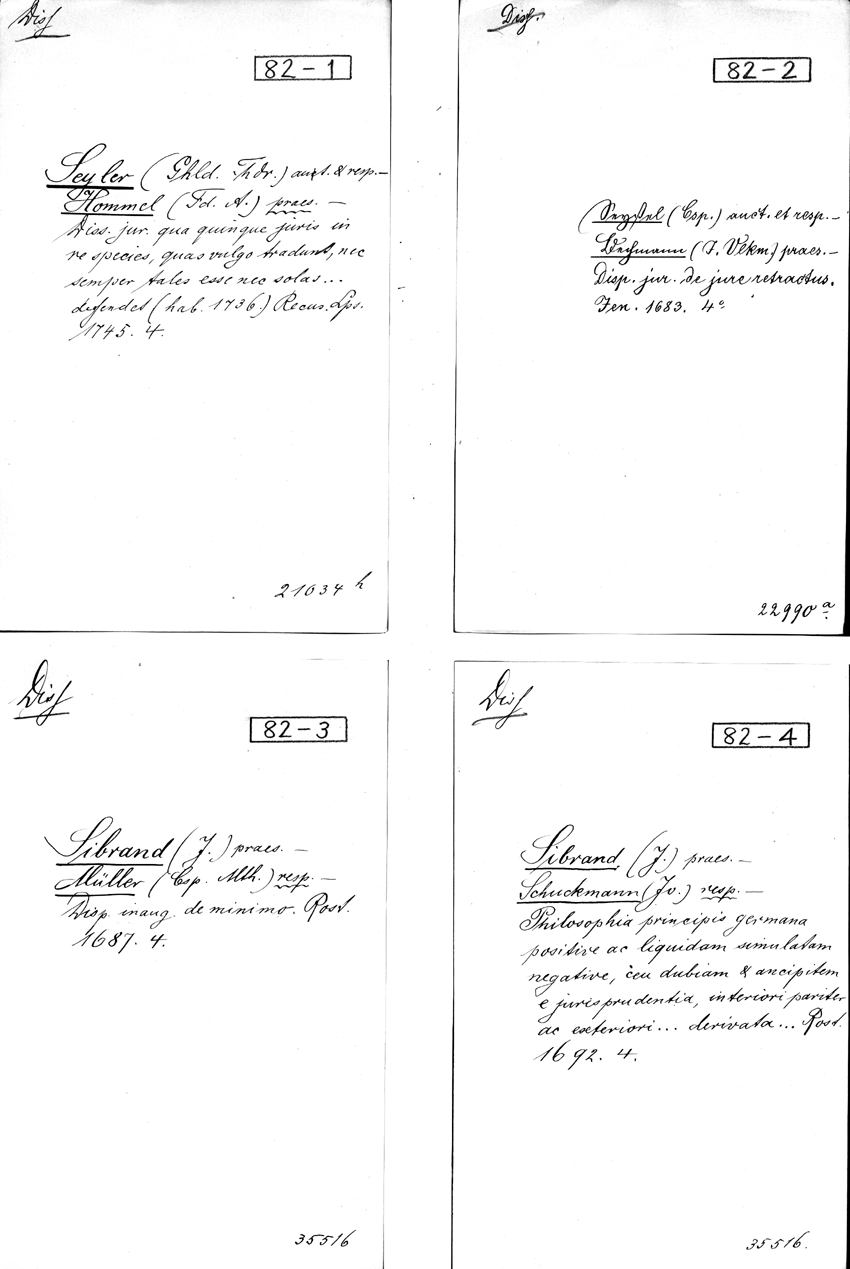 Diss
82-1
Seyler (Ghld. Thdr.) auct. & resp.—
Hommel (Fd. A.) praes.—
Diss. jur. qua quinque juris in
re species, quas vulgo tradunt, nec
semper tales esse nec solas...
defendet (hab. 1736.) Recus. Lps.
1745. 4.
21034 h
Diss.
82-2
(Csp.) auct. et resp.—
(J. Vlkm) praes.—
Disp. jur. de jure retractus.
Jen. 1683. 4°
22990 a
Diss
82-3
Sibrand (J.) praes.—
Müller (Csp. Mth.) resp.—
Disp. inaug. de minimo. Rost.
1687. 4.
35516
Diss
82-4
Sibrand (J.) praes.—
Schuckmann (Jo.) resp.—
Philosophia principis germana
positive ac liquidam simulatam
negative, ceu dubiam & ancipitem
e jurisprudentia, interiori pariter
ac exteriori... derivata... Rost.
1692. 4.
35516.